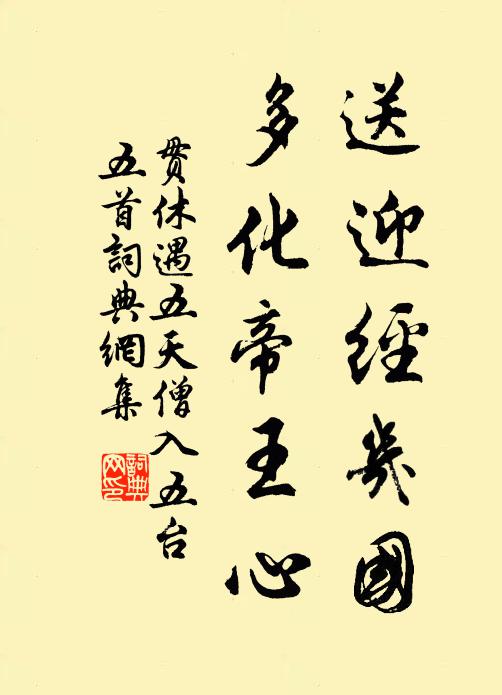 送迎經幾國
多化帝王心
貫休遇五天僧入五台
五首詞典網集
詞典网印